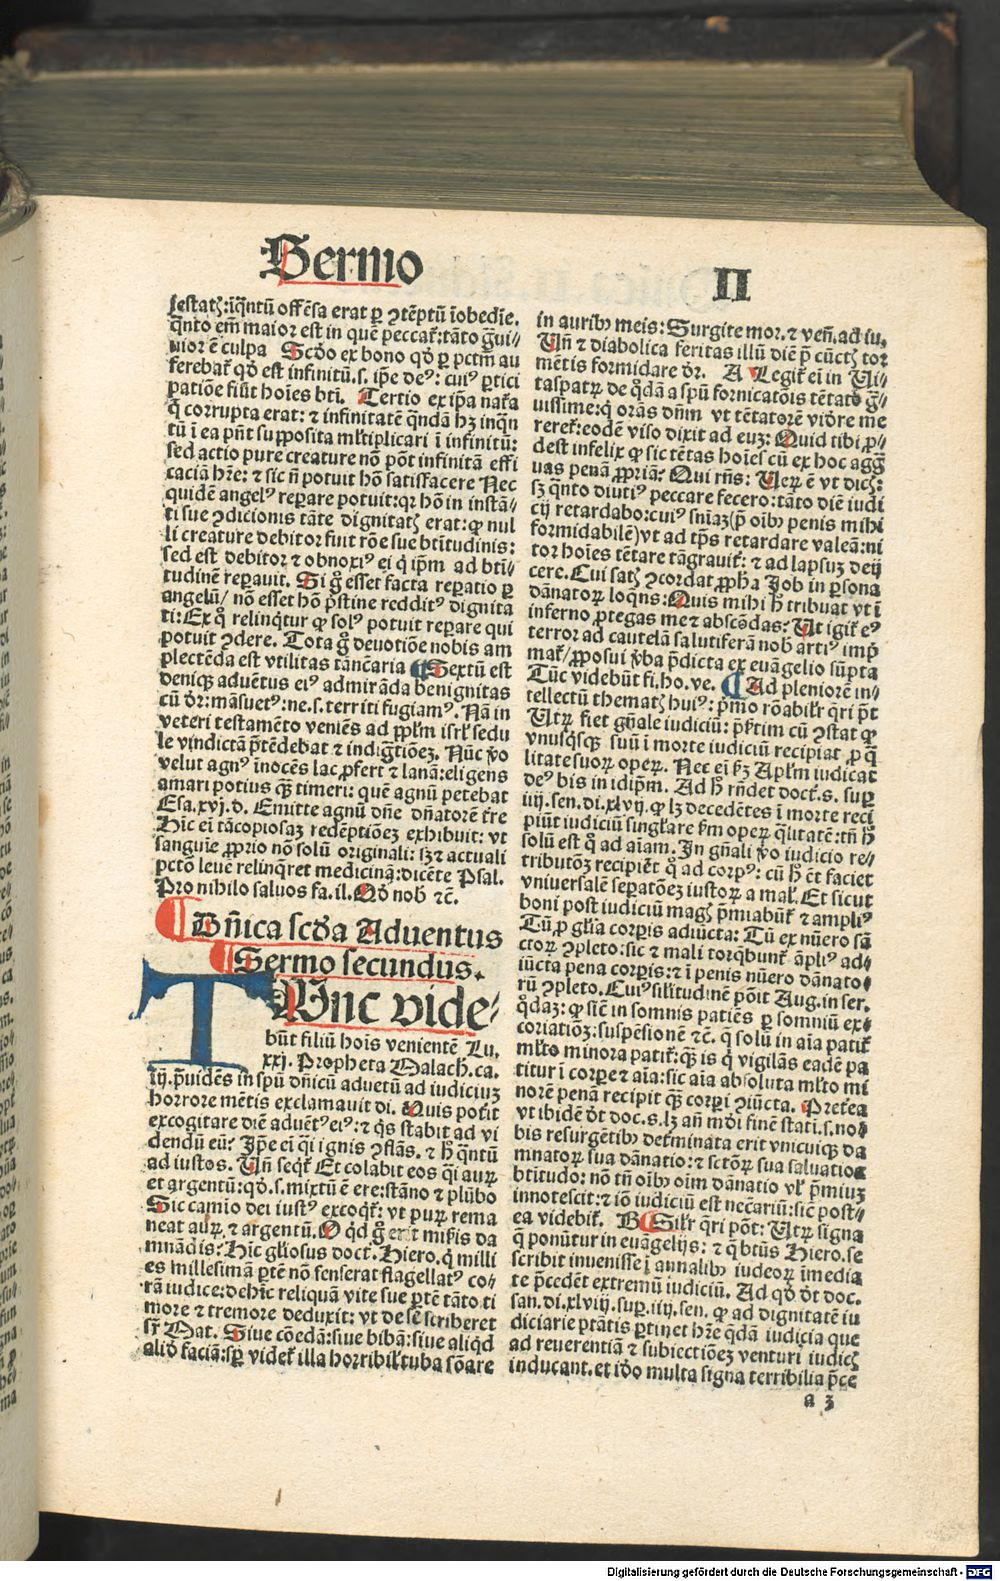 Sermo
II
iestatꝭ:iq̃ntũ offẽsa erat ꝑ ꝯtẽptũ iobedĩe.
q̃nto em̃ maior est in quẽ peccat᷑:tãto g̃ui⸗
uior ẽ culpa Scd̾o ex bono qd̾ ꝑ pctm̃ au
ferebat᷑ qd̾ est infinitũ.s. ip̃e deꝰ: cuiꝰ ꝑtici
patiõe fiũt hoĩes bti̇. Tertio ex ip̃a nat᷑a
q̃ corrupta erat: ⁊ infinitatẽ q̃ndã hꝫ inq̃n
tũ ĩ ea pn̄t supposita ml̃tiplicari ĩ infinitũ:
sed actio pure creature nõ põt infinitã effi
caciã hr̃e: ⁊ sic ñ potuit hõ satisfacere Nec
quidẽ angelꝰ reꝑare potuit:qꝛ hõ in instã⸗
ti sue ꝯdicionis tãte dignitatꝭ erat: ꝙ nul
li creature debitor fuit rõe sue btĩtudinis:
sed est debitor ⁊ obnoxiꝰ ei q̇ ip̃m ad btĩ⸗
tudinẽ reꝑauit. Si g̊ esset facta reꝑatio ꝑ
angelũ/ nõ esset hõ p̃stine redditꝰ dignita
ti: Ex q̊ relinq̇tur ꝙ solꝰ potuit reꝑare qui
potuit ꝯdere. Tota g̊ deuotiõe nobis am
plectẽda est vtilitas tãnẽcaria ¶ Sextũ est
deniqꝫ aduẽtus eiꝰ admirãda benignitas
cũ dr̃: mãsuetꝰ: ne.s. territi fugiamꝰ. Nã in
veteri testamẽto veniẽs ad ppl̃m isrl̃ sedu
le vindictã p̃tẽdebat ⁊ indig̃tiõeꝫ. Nũc v̾o
velut agnꝰ inocẽs lac ꝓfert ⁊ lanã: eligens
amari potius qꝫ timeri: quẽ agnũ petebat
Esa.xvj.d. Emitte agnũ dñe dñatorẽ t̃re
Hĩc eĩ tã copiosaꝫ redẽptiõeꝫ exhibuit: vt
sanguĩe ꝓprio nõ solũ originali: sꝫ ⁊ actuali
pctõ leuẽ relinq̃ret medicinã: dicẽte Psal.
Pro nihilo saluos fa. il. Qd̾ nob̾ ⁊c̃.
¶ Dñica scd̾a Aduentus
¶ Sermo secundus.
TUnc vide⸗
bũt filiũ hoĩs venientẽ Lu.
xxj. Propheta Malach. ca.
iij. p̃uidẽs in spũ dñicũ aduẽtũ ad iudiciuꝫ
horrore mẽtis exclamauit di. Quis pot̾it
excogitare diẽ aduẽtꝰ eiꝰ: ⁊ q̇s stabit ad vi
dendũ eũ? Ip̃e eĩ q̃i ignis ꝯflãs. ⁊ h̊ q̃ntũ
ad iustos. Uñ seq̇t᷑ Et colabit eos q̃i auꝝ
et argentũ: qd̾. s. mixtũ ẽ ere: stãno ⁊ plũbo
Sic camio dei iustꝰ excoq̇t᷑: vt puꝝ rema
neat auꝝ ⁊ argentũ. O qd̾ g̊ erit mis̃is da
mnãdis? Hĩc gl̃iosus doct̾. Hiero. q̇ milli
es millesimã ꝑtẽ nõ senserat flagellatꝰ co⸗
rã iudice: dehĩc reliquã vite sue ꝑtẽ tãto ti
more ⁊ tremore deduxit: vt de se scriberet
sr̃ Mat. Siue cõedã: siue bibã: siue aliq̇d
aliõ faciã: sꝑ videt᷑ illa horribil̃ tuba sõare
in auribꝰ meis: Surgite mor. ⁊ veñ. ad iu.
Uñ ⁊ diabolica feritas illũ diẽ p̃ cũctꝭ tor
mẽtis formidare dr̃. A Legit᷑ eĩ in Ui⸗
taspatꝝ de q̊dã a spũ fornicatõis tẽtato g̃⸗
uissime: q̇ orãs dñm vt tẽtatorẽ vid̾re me
reret᷑: eodẽ viso dixit ad euꝫ: Quid tibi ꝓ⸗
dest infelix ꝙ sic tẽtas hoĩes cũ ex hoc agg̃
uas penã ꝓpriã? Qui rñs: Ueꝝ ẽ vt dicꝭ:
sꝫ q̃nto diutiꝰ peccare fecero: tãto diẽ iudi
cij retardabo: cuiꝰ sñiaꝫ (p̃ oĩbꝰ penis mihi
formidabilẽ) vt ad tp̃s retardare valeã: ni
tor hoĩes tẽtare tã grauit᷑: ⁊ ad lapsuꝫ deij
cere. Cui satꝭ ꝯcordat ꝓpha Job in ꝑsona
dãnatoꝝ loq̃ns: Quis mihi h̊ tribuat vt ĩ
inferno ꝓtegas me ⁊ abscõdas? Ut igit᷑ eꝰ
terror ad cautelã salutiferã nob̾ artiꝰ imp̃
mat᷑/ ꝓposui v̾ba p̃dicta ex euãgelio sũpta
Tũc videbũt fi. ho. ve. ¶ Ad pleniorẽ in⸗
tellectũ thematꝭ huiꝰ: p̃mo rõabilr̃ q̃ri p̃t
Utꝝ fiet gñale iudiciũ: p̃t᷑tim cũ ꝯstat ꝙ
vnusq̇sqꝫ suũ ĩ morte iudiciũ recipiat ꝓ q̃
litate suoꝝ opeꝝ. Nec eĩ ẜꝫ Apl̃m iudicat
deꝰ bis in idip̃m. Ad h̊ rñdet doct̾. s. suꝑ
iiij. sen. di. xlvij. ꝙ lꝫ decedẽtes ĩ morte reci
piũt iudiciũ singl̃are ẜm opeꝝ q̃litatẽ: tñ h̊
solũ est q̊ ad aĩam. In gñali v̾o iudicio re⸗
tributõꝫ recipiẽt q̊ ad corpꝰ: cũ h̊ ẽt faciet
vniuersalẽ sepatõeꝫ iustoꝝ a mal᷑. Et sicut
boni post iudiciũ magꝭ p̃miabũt᷑ ⁊ ampliꝰ
Tũ ꝓ gl̃ia corꝑis adiũcta: Tũ ex nũero sã
ctoꝝ ꝯpleto: sic ⁊ mali torq̃bunt᷑ ãpliꝰ ad⸗
iũcta pena corꝑis: ⁊ ĩ penis nũero dãnato⸗
rũ ꝯpleto. Cuiꝰ sil̃itudinẽ põit Aug. in ser.
q̊daꝫ: ꝙ siẽt in somnis patiẽs ꝑ somniũ ex⸗
coriatiõꝫ: suspẽsionẽ ⁊c̃. q̃ solũ in aĩa patit᷑
ml̃to minora patit᷑: qꝫ is q̇ vigilãs eadẽ pa
titur ĩ corꝑe ⁊ aĩa: sic aĩa absoluta ml̃to mi
norẽ penã recipit qꝫ corꝑi ꝯiũcta. Pret̾ea
vt ibidẽ d̾t doc. s. lꝫ añ mũdi finẽ stati. s. no⸗
bis resurgẽtibꝰ det̾minata erit vnicuiqꝫ da
mnatoꝝ sua dãnatio: ⁊ sctõꝝ sua saluatio ⁊
btĩtudo: nõ tñ oĩbꝰ oĩm dãnatio vl᷑ p̃miuꝫ
innotescit: ⁊ iõ iudiciũ est nec̃ariũ: siẽ post⸗
ea videbit᷑. B ¶ Silr̃ q̃ri põt: Utꝝ signa
q̃ ponũtur in euãgelijs: ⁊ q̃ btũs Hiero. se
scribit inuenisse ĩ annalibꝰ iudeoꝝ ĩmedia
te p̃cedẽt extremũ iudiciũ. Ad qd̾ d̾t doc.
san. di. xlviij. suꝑ. iiij. sen. ꝙ ad dignitatẽ iu
diciarie ptãtis ꝑtinet hr̃e q̃dã iudicia que
ad reuerentiã ⁊ subiectiõeꝫ venturi iudicꝭ
inducant. et id̾o multa signa terribilia p̃ce
a 3
Digitalisierung gefördert durch die Deutsche Forschungsgemeinschaft - DFG